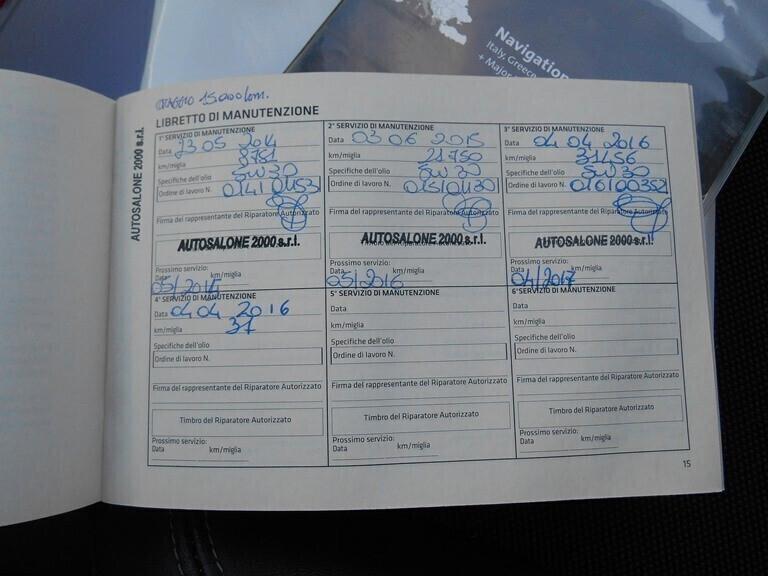 Navigation
Italy, Greece
+ Major
15000 km.
LIBRETTO DI MANUTENZIONE
AUTOSALONE 2000 s.r.l.
1° SERVIZIO DI MANUTENZIONE
Data 23 05 2014
km/miglia 9751
Specifiche dell'olio 5W30
Ordine di lavoro N. 014/01153
Firma del rappresentante del Riparatore Autorizzato
AUTOSALONE 2000 s.r.l.
Prossimo servizio:
Data 05/2015 km/miglia
2° SERVIZIO DI MANUTENZIONE
Data 03 06 2015
km/miglia 21750
Specifiche dell'olio 5W30
Ordine di lavoro N. 015/01130
Firma del rappresentante del Riparatore Autorizzato
AUTOSALONE 2000 s.r.l.
Prossimo servizio:
Data 05/2016 km/miglia
3° SERVIZIO DI MANUTENZIONE
Data 04 04 2016
km/miglia 31456
Specifiche dell'olio 5W30
Ordine di lavoro N. 016/00352
Firma del rappresentante del Riparatore Autorizzato
AUTOSALONE 2000 s.r.l.
Prossimo servizio:
Data 04/2017 km/miglia
4° SERVIZIO DI MANUTENZIONE
Data 04 04 2016
km/miglia 31
Specifiche dell'olio
Ordine di lavoro N.
Firma del rappresentante del Riparatore Autorizzato
Timbro del Riparatore Autorizzato
Prossimo servizio:
Data km/miglia
5° SERVIZIO DI MANUTENZIONE
Data
km/miglia
Specifiche dell'olio
Ordine di lavoro N.
Firma del rappresentante del Riparatore Autorizzato
Timbro del Riparatore Autorizzato
Prossimo servizio:
Data km/miglia
6° SERVIZIO DI MANUTENZIONE
Data
km/miglia
Specifiche dell'olio
Ordine di lavoro N.
Firma del rappresentante del Riparatore Autorizzato
Timbro del Riparatore Autorizzato
Prossimo servizio:
Data km/miglia
15